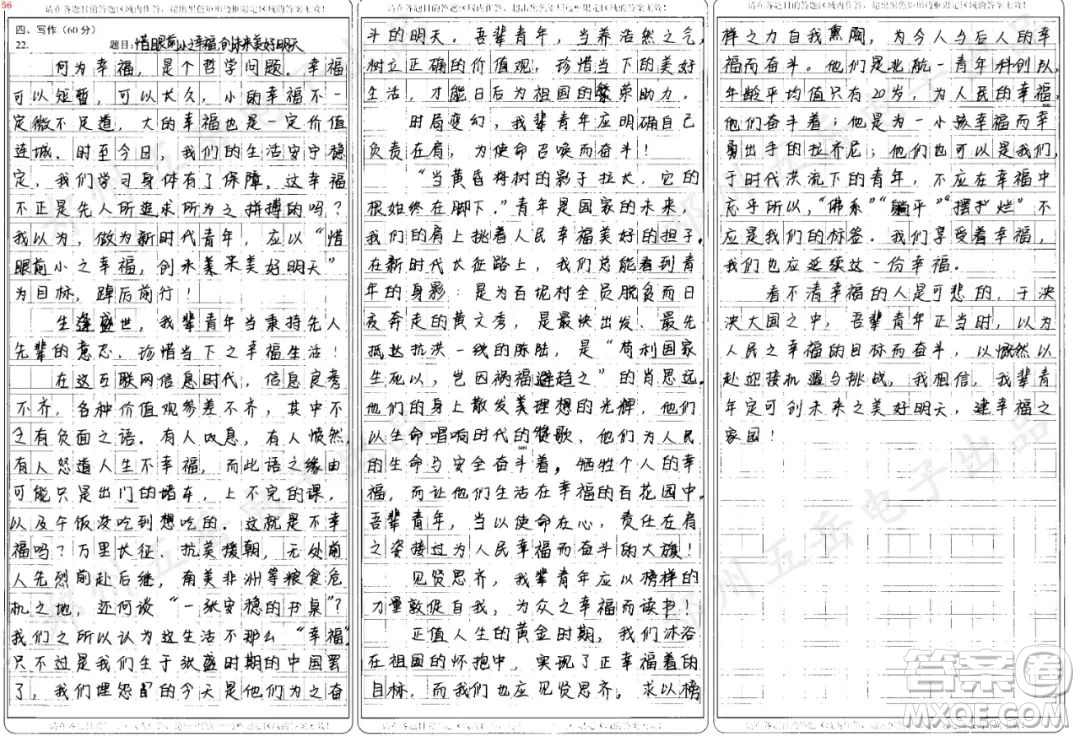 56
请在各题目的答题区域内作答，超出黑色矩形边框限定区域的答案无效！
四、写作（60分）
22.
题目：惜眼前小之幸福，创未来美好明天
何为幸福，是个哲学问题。幸福
可以短暂，可以长久，小的幸福不一
定微不足道，大的幸福也是一定价值
连城。时至今日，我们的生活安宁稳
定，我们学习身体有了保障。这幸福
不正是先人所追求所为之拼搏的吗？
我以为，做为新时代青年，应以“惜
眼前小之幸福，创未来美好明天”
为目标，踔厉前行！
生逢盛世，我辈青年当秉持先人
先辈的意志，珍惜当下之幸福生活！
在这互联网信息时代，信息良莠
不齐，各种价值观参差不齐，其中不
乏有负面之语。有人叹息，有人愤然，
有人怒道人生不幸福，而此语之缘由
可能只是出门的堵车，上不完的课，
以及午饭没吃到想吃的。这就是不幸
福吗？万里长征、抗美援朝，无处前
人先烈前赴后继，南美非洲等粮食危
机之地，还何谈“一张安稳的书桌”？
我们之所以认为这生活不那么“幸福”
只不过是我们生于张盛时期的中国罢
了，我们埋怨的今天是他们为之奋
请在各题目的答题区域内作答，超出黑色矩形边框限定区域的答案无效！
请在各题目的答题区域内作答，超出黑色矩形边框限定区域的答案无效！
斗的明天。吾辈青年，当养浩然之气，
树立正确的价值观，珍惜当下的美好
生活，才能日后为祖国的繁荣助力。
时局变幻，我辈青年应明确自己
负责在肩，为使命召唤而奋斗！
“当黄昏将树的影子拉长，它的
根始终在脚下。”青年是国家的未来，
我们的肩上挑着人民幸福美好的担子。
在新时代长征路上，我们总能看到青
年的身影：是为百坭村全员脱贫而日
夜奔走的黄文秀，是最快出发、最先
抵达抗洪一线的陈陆，是“苟利国家
生死以，岂因祸福避趋之”的肖思远。
他们的身上散发美理想的光辉，他们
以生命唱响时代的赞歌，他们为人民
的生命与安全奋斗着，牺牲个人的幸
福，而让他们生活在幸福的百花园中。
吾辈青年，当以使命在心，责任在肩
之姿接过为人民幸福而奋斗的大旗！
见贤思齐，我辈青年应以榜样的
力量敦促自我，为众之幸福而读书！
正值人生的黄金时期，我们沐浴
在祖国的怀抱中，实现了正幸福着的
目标，而我们也应见贤思齐。求以榜
请在各题目的答题区域内作答，超出黑色矩形边框限定区域的答案无效！
请在各题目的答题区域内作答，超出黑色矩形边框限定区域的答案无效！
样之力自我熏陶，为今人与后人的幸
福而奋斗。他们是北航一青年科创队，
年龄平均值只有20岁，为人民的幸福，
他们奋斗着；他是为一小孩幸福而率
勇出手的拉齐尼；他们也可以是我们，
于时代洪流下的青年，不应在幸福中
忘乎所以，“佛系”“躺平”“摆烂”不
应是我们的标签。我们享受着幸福，
我们也应延续这一份幸福。
看不清幸福的人是可悲的，于泱
泱大国之中，吾辈青年正当时，以为
人民之幸福的目标而奋斗，以慨然以
赴迎接机遇与挑战，我相信，我辈青
年定可创未来之美好明天，建幸福之
家园！
请在各题目的答题区域内作答，超出黑色矩形边框限定区域的答案无效！
郑州五岳电子出品
答案圈
MXQE.COM